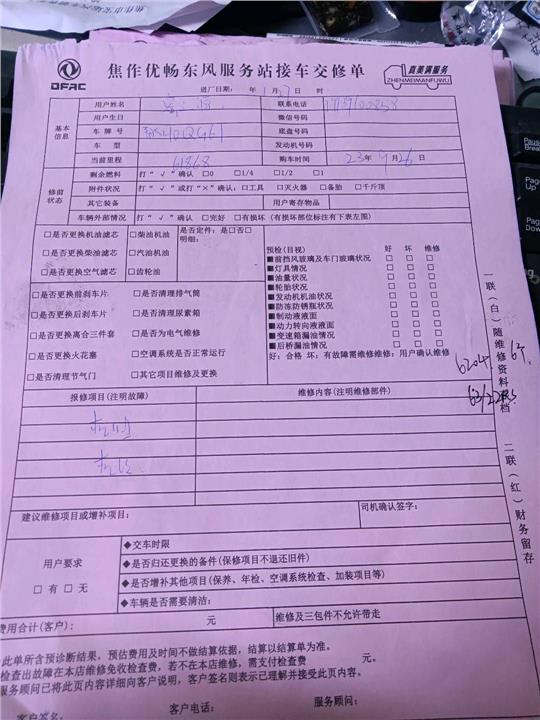 DFAC
焦作优畅东风服务站接车交修单
真美满服务
ZHENMEIMANFUWU
进厂日期: 年 1月27日 时
基本信息
用户姓名
联系电话
用户生日
微信号码
车牌号
底盘号码
车型
发动机号码
当前里程 61868
购车时间 23年9月26日
修前状态
剩余燃料 打“√”确认 □0 □1/4 □1/2 □1
附件状况 打“√”或打“×”确认:□工具 □灭火器 □备胎 □千斤顶
其它装备
用户寄存物品
车辆外部情况 打“√”确认 □完好 □有损坏(有损坏部位标注有下表左图)
□是否更换机油滤芯 □柴油机油 是否定件:是□否□
明细:
□是否更换柴油滤芯 □汽油机油
□是否更换空气滤芯 □齿轮油
□是否更换前刹车片 □是否清理排气筒
□是否更换后刹车片 □是否清理尿素箱
□是否更换离合三件套 □是否为电气维修
□是否更换火花塞 □空调系统是否正常运行
□是否清理节气门 □其它项目维修及更换
预检(目视) 好 坏 维修
■前挡风玻璃及车门玻璃状况 □ □ □
■灯具情况 □ □ □
■油量状况 □ □ □
■轮胎状况 □ □ □
■发动机机油状况 □ □ □
■防冻防锈瓶状况 □ □ □
■制动液液面 □ □ □
■动力转向液液面 □ □ □
■变速箱漏油情况 □ □ □
■后桥漏油情况 □ □ □
好:合格 坏:有故障需维修维修:用户确认维修
报修项目(注明故障)
维修内容(注明维修部件)
建议维修项目或增补项目:
司机确认签字:
用户要求
□有 □无
◆交车时限
◆是否归还更换的备件(保修项目不退还旧件)
◆是否增补其他项目(保养、年检、空调系统检查、加装项目等)
◆车辆是否需要清洁:
费用合计(客户): 元
维修及三包件不允许带走
此单所含预诊断结果,预估费用及时间不做结算依据,结算以结算单为准。
检查出故障在本店维修免收检查费,若不在本店维修,需支付检查费 元。
服务顾问已将此页内容详细向客户说明,客户签名则表示已理解并接受此页内容。
客户签名: 客户电话: 服务顾问:
一联(白)随维修资料存档
二联(红)财务留存